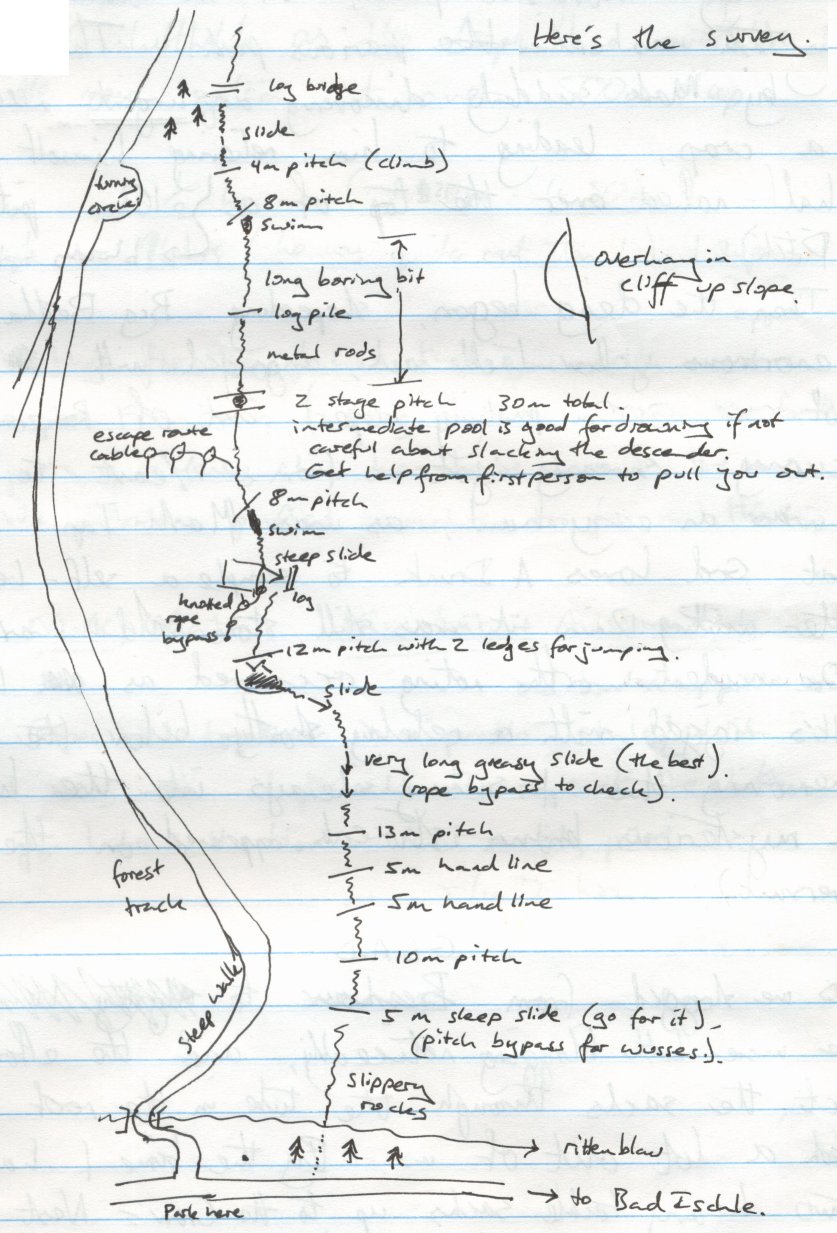 Here's the survey.
log bridge
slide
4m pitch (climb)
turning
circle
8m pitch
swim
long boring bit
overhang in
cliff up slope.
log pile
metal rods
2 stage pitch 30m total.
intermediate pool is good for drowning if not
careful about slacking the descender.
Get help from first person to pull you out.
escape route
cable
8m pitch
swim
steep slide
log
knotted
rope
bypass
12m pitch with 2 ledges for jumping.
slide
very long greasy slide (the best).
(rope bypass to check).
13m pitch
5m hand line
5m hand line
forest
track
10m pitch
steep walk
5m steep slide (go for it).
(pitch bypass for wusses.).
slippery
rocks
Park here
to Bad Ischle.